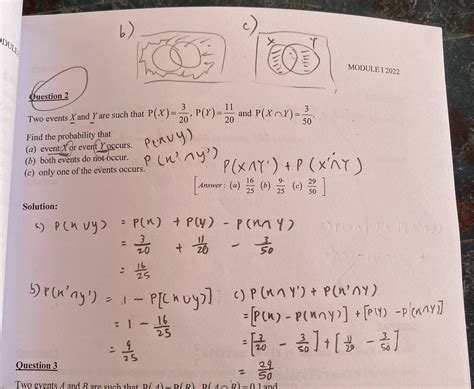 b)
c)
X Y
DULE
MODULE I 2022
Question 2
Two events X and Y are such that P(X)=3/20, P(Y)=11/20 and P(X∩Y)=3/50.
Find the probability that
(a) event X or event Y occurs. P(x∪y)
(b) both events do not occur. P(x'∩y')
(c) only one of the events occurs. P(X∩Y') + P(X'∩Y)
[Answer : (a) 16/25 (b) 9/25 (c) 29/50]
Solution:
a) P(x∪y) = P(x) + P(y) - P(x∩y)
= 3/20 + 11/20 - 3/50
= 16/25
b) P(x'∩y') = 1 - P[(x∪y)]
= 1 - 16/25
= 9/25
c) P(x∩y') + P(x'∩y)
= [P(x) - P(x∩y)] + [P(y) - P(x∩y)]
= [3/20 - 3/50] + [11/20 - 3/50]
= 29/50
Question 3
Two events A and B are such that P(A)=P(B), P(A∩B)=0.1and